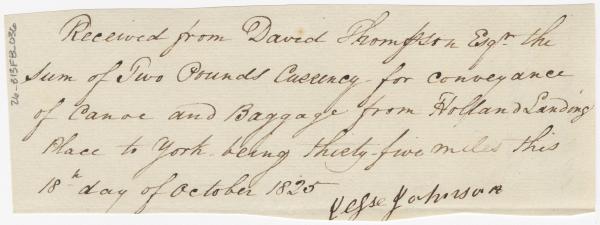 Received from David Thompson Esqr. the
sum of Two Pounds Currency for conveyance
of Canoe and Baggage from Holland Landing
Place to York being thirty-five miles this
18th day of October 1825
Jesse Johnson
26-613FB-036